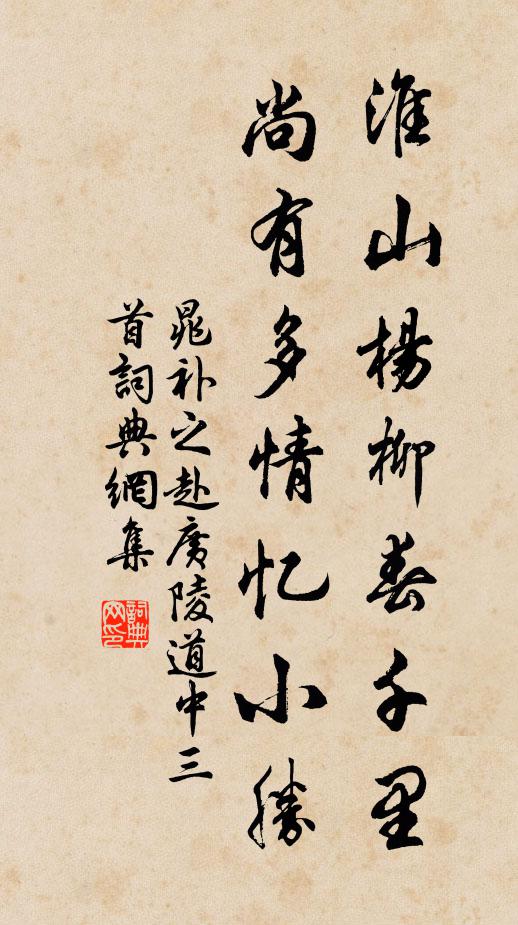 淮山楊柳春千里
尚有多情忆小勝
晁补之赴廣陵道中三
首詞典網集
詞典網印